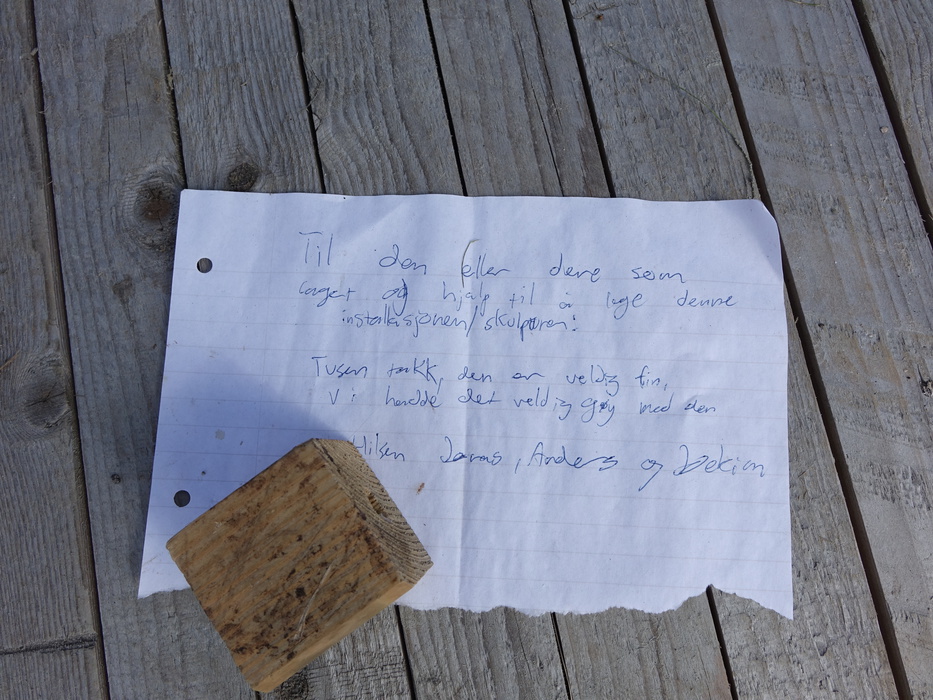 Til den eller dere som
laget og hjalp til å lage denne
installasjonen/skulpturen:
Tusen takk, den er veldig fin,
Vi hadde det veldig gøy med den
Hilsen Anders og